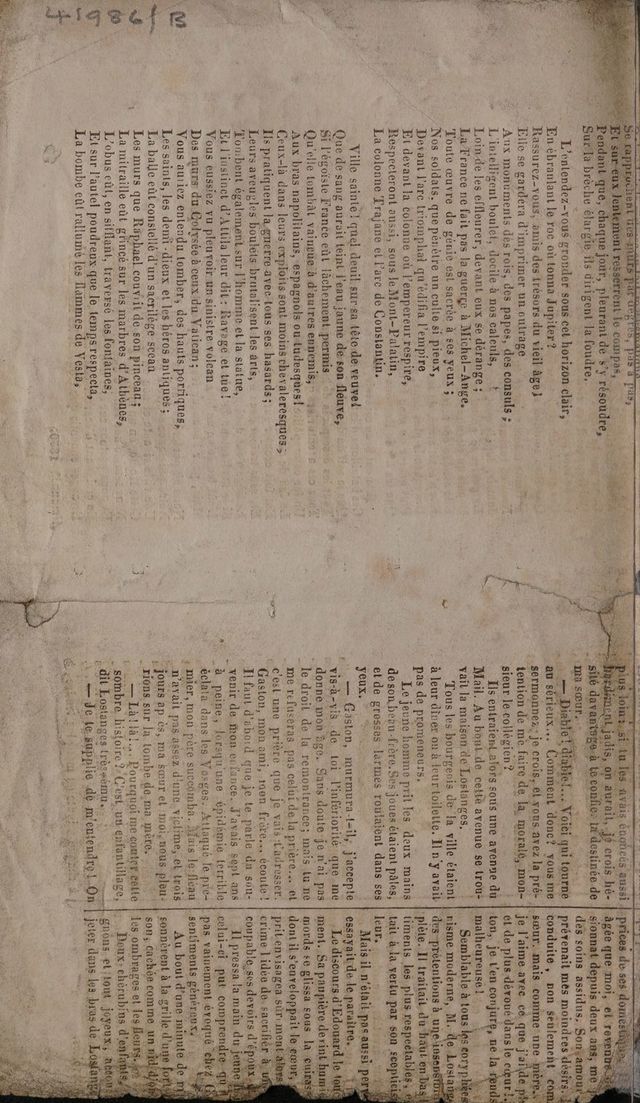 41986/B
Et sur eux lentement resserrent le compas,
Pendant que, chaque jour, pleurant de s'y résoudre,
Sur la brèche élargie ils dirigent la foudre.
L'entendez-vous gronder sous cet horizon clair,
En ébranlant le roc où tonna Jupiter?
Rassurez-vous, amis des trésors du vieil âge!
Elle se gardera d'imprimer un outrage
Aux monuments des rois, des papes, des consuls;
L'intelligent boulet, docile à nos calculs,
Loin de les effleurer, devant eux se dérange;
La France ne fait pas la guerre à Michel-Ange.
Toute œuvre de génie est sacrée à ses yeux;
Nos soldats, que pénètre un culte si pieux,
Devant l'arc triomphal qu'édifia l'empire
Et devant la colonne où l'empereur respire,
Respecteront aussi, sous le Mont-Palatin,
La colonne Trajane et l'arc de Constantin.
Ville sainte! quel deuil sur sa tête de veuve!
Que de sang aurait teint l'eau jaune de son fleuve,
Si l'égoïste France eût lâchement permis
Qu'elle tombât vaincue à d'autres ennemis,
Aux bras napolitains, espagnols ou tudesques!
Ceux-là dans leurs exploits sont moins chevaleresques;
Ils pratiquent la guerre avec tous ses hasards;
Leurs aveugles boulets brutalisent les arts,
Tombent également sur l'homme et la statue,
Et l'instinct d'Attila leur dit: Ravage et tue!
Vous eussiez vu pleuvoir un sinistre volcan
Des murs du Colysée à ceux du Vatican;
Vous auriez entendu tomber, des hauts portiques,
Les saints, les demi-dieux et les héros antiques;
La balle eût constellé d'un sacrilége sceau
Les murs que Raphaël couvrit de son pinceau;
La mitraille eût grincé sur les marbres d'Athènes,
L'obus eût, en sifflant, traversé les fontaines,
Et sur l'autel poudreux que le temps respecta,
La bombe eût rallumé les flammes de Vesta,
plus loin, si tu les avais écoutés aussi
jadis, on aurait, je crois hé-
sité davantage à te confier la destinée de
ma sœur.
— Diable! diable!... Voici qui tourne
au sérieux... Comment donc? vous me
sermonnez, je crois, et vous avez la pré-
tention de me faire de la morale, mon-
sieur le collégien?
Ils entraient alors sous une avenue du
Mail. Au bout de cette avenue se trou-
vait la maison de Lostanges.
Tous les bourgeois de la ville étaient
à leur dîner ou à leur toilette. Il n'y avait
pas de promeneurs.
Le jeune homme prit les deux mains
de son beau-frère. Ses joues étaient pâles,
et de grosses larmes roulaient dans ses
yeux.
— Gaston, murmura-t-il, j'accepte
vis-à-vis de toi l'infériorité que me
donne mon âge. Sans doute je n'ai pas
le droit de la remontrance; mais tu ne
me refuseras pas celui de la prière... et
c'est une prière que je vais t'adresser.
Gaston, mon ami, mon frère... écoute!
Il faut d'abord que je te parle du sou-
venir de mon enfance. J'avais sept ans
à peine, lorsqu'une épidémie terrible
éclata dans les Vosges. Attaqué le pre-
mier, mon père succomba. Mais le fléau
n'avait pas assez d'une victime, et trois
jours après, ma sœur et moi, nous pleu-
rions sur la tombe de ma mère.
— Là! là!... Pourquoi me conter cette
sombre histoire? C'est un enfantillage,
dit Lostanges très-ému.
— Je te supplie de m'entendre! On
prices de ses domestiq
âgée que moi, et revenue
sionnat depuis deux ans, me
des soins assidus. Son amour
prévenait mes moindres désirs
conduite, non seulement com
sœur, mais comme une mère...
je l'aime avec ce que j'ai de p
et de plus dévoué dans le cœur!
ton, je t'en conjure, ne la rends
malheureuse!
Semblable à tous les coryphées
nisme moderne, M. de Lostang
des prétentions à une insensibi
plète. Il traitait du haut en bas
timents les plus respectables,
tait à la vertu par son scepticis
leur.
Mais il n'était pas aussi perv
essayait de le paraître.
Le discours d'Édouard le tou
ment. Sa paupière devint humi
mords se glissa sous la cuirass
dont il s'enveloppait le cœur,
prit envisagea sûrement alors
crime l'idée de sacrifier à un
coupable ses devoirs d'époux d
Il pressa la main du jeune h
celui-ci put comprendre qu'i
pas vainement évoqué chez G
sentiments généreux.
Au bout d'une minute de m
sonnèrent à la grille d'une fort
son, cachée comme un nid d'oi
les ombrages et les fleurs.
Deux chérubins d'enfants,
gnons et tout joyeux, accou
jeter dans les bras de Lostang